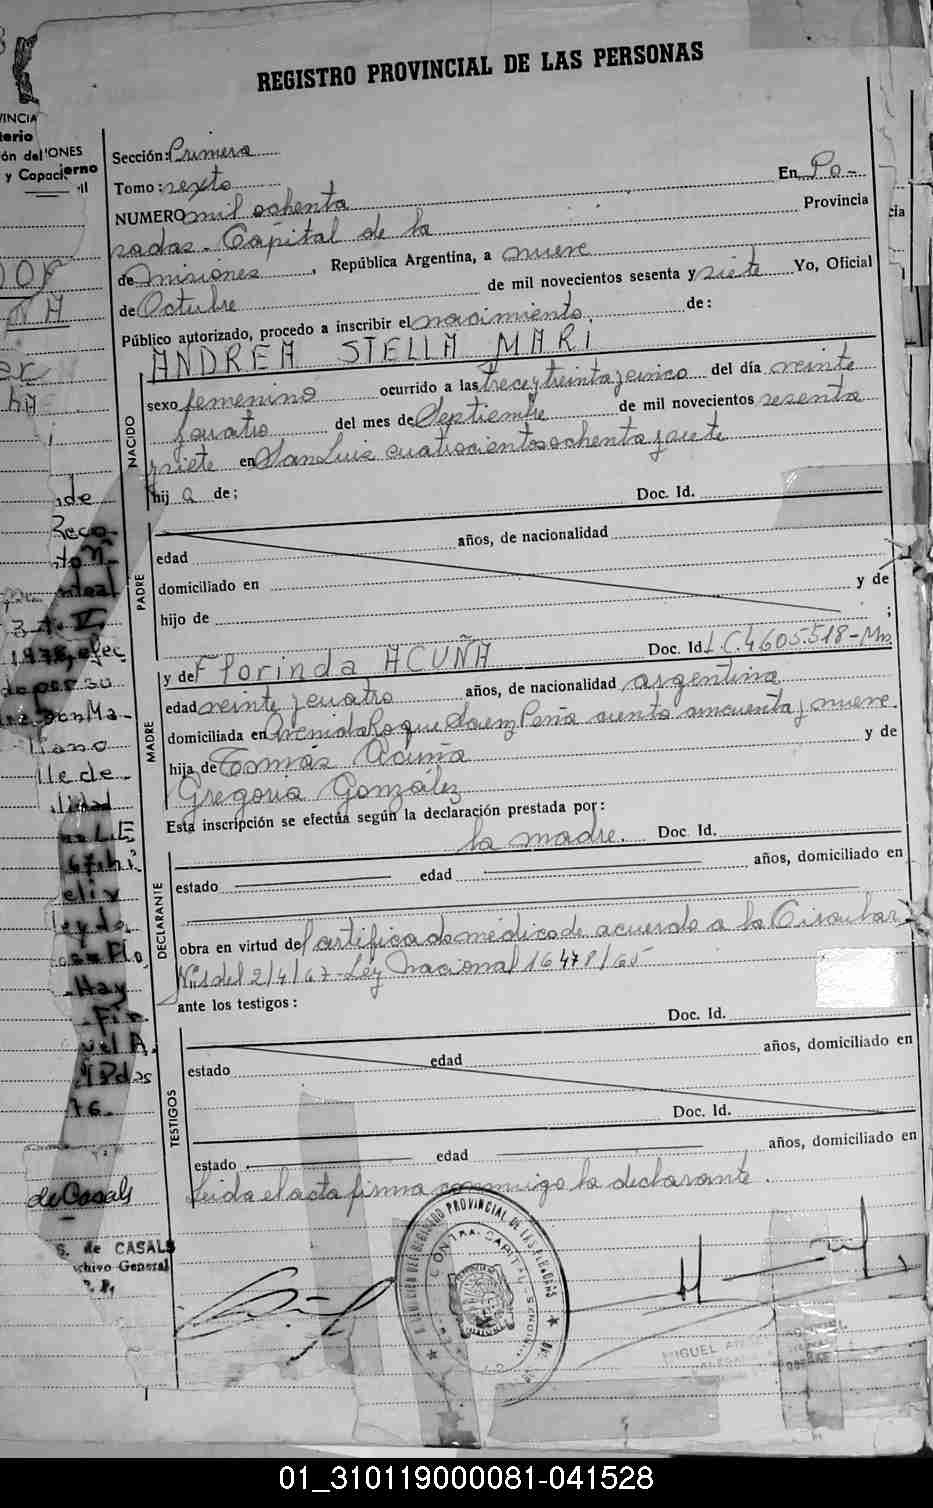 REGISTRO PROVINCIAL DE LAS PERSONAS
VINCIA
terio
ón del ONES
y Capac ierno
Sección: Primera
Tomo: sexto
NUMERO mil ochenta En Po-
sadas - Capital de la Provincia
de Misiones, República Argentina, a nueve
de Octubre de mil novecientos sesenta y siete Yo, Oficial
Público autorizado, procedo a inscribir el nacimiento de:
ANDREA STELLA MARI
NACIDO
sexo femenino ocurrido a las trece y treinta y cinco del día veinte
y cuatro del mes de Septiembre de mil novecientos sesenta
y siete en San Luis cuatrocientos ochenta y siete
hij a de;
Doc. Id.
PADRE
edad años, de nacionalidad
domiciliado en
hijo de y de
;
MADRE
y de Florinda ACUÑA Doc. Id L.C. 4.605.518-Mns
edad veinte y cuatro años, de nacionalidad argentina
domiciliada en Avenida Roque Saenz Peña ciento cincuenta y nueve
hija de Tomás Acuña y de
Gregoria González
Esta inscripción se efectúa según la declaración prestada por:
la madre. Doc. Id.
DECLARANTE
estado edad años, domiciliado en
obra en virtud del Certificado médico de acuerdo a la Circular
del 2/4/67 - Ley Nacional 16478/65
ante los testigos:
Doc. Id.
TESTIGOS
estado edad años, domiciliado en
Doc. Id.
estado edad años, domiciliado en
Leida el acta firma conmigo la declarante.
nde
Reco-
1978, efec
de per su
don Ma-
riano
lle de
lidad
L.E
67, hi
elix
leyda
Flo
- Hay
- Fir
uel A.
Pdas
76.
de Casals
S. de CASALS
chivo General
REGISTRO PROVINCIAL DE LAS PERSONAS
CAPITAL
MIGUEL
01_310119000081-041528